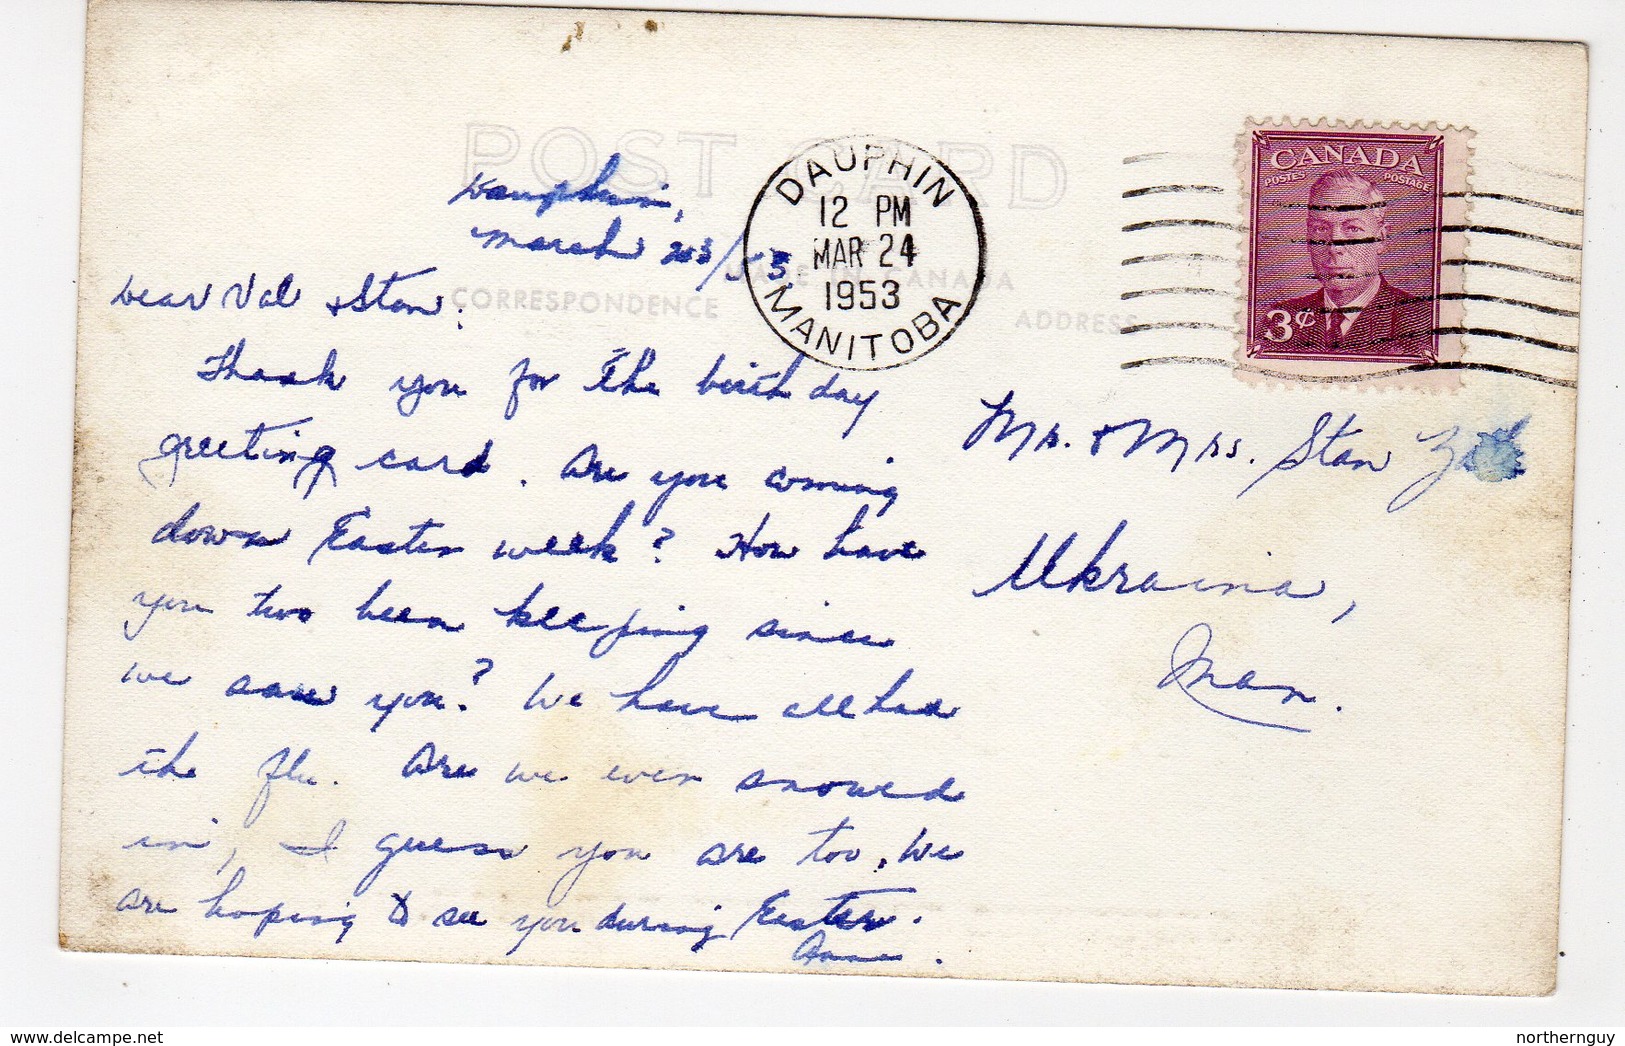 POST CARD
Dauphin,
March 23/53
MADE IN CANADA
CORRESPONDENCE
ADDRESS
DAUPHIN
12 PM
MAR 24
1953
MANITOBA
CANADA
POSTES POSTAGE
3¢
Dear Val & Stan:
Thank you for the birthday
greeting card. Are you coming
down Easter week? How have
you two been keeping since
we saw you? We have all had
the flu. Are we ever snowed
in, I guess you are too. We
are hoping to see you during Easter.
Anne.
Mr. & Mrs. Stan
Ukraina,
Man.
northernguy